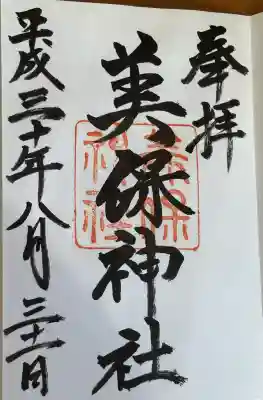 奉拝
美保神社
美保
神社
平成三十年八月三十一日